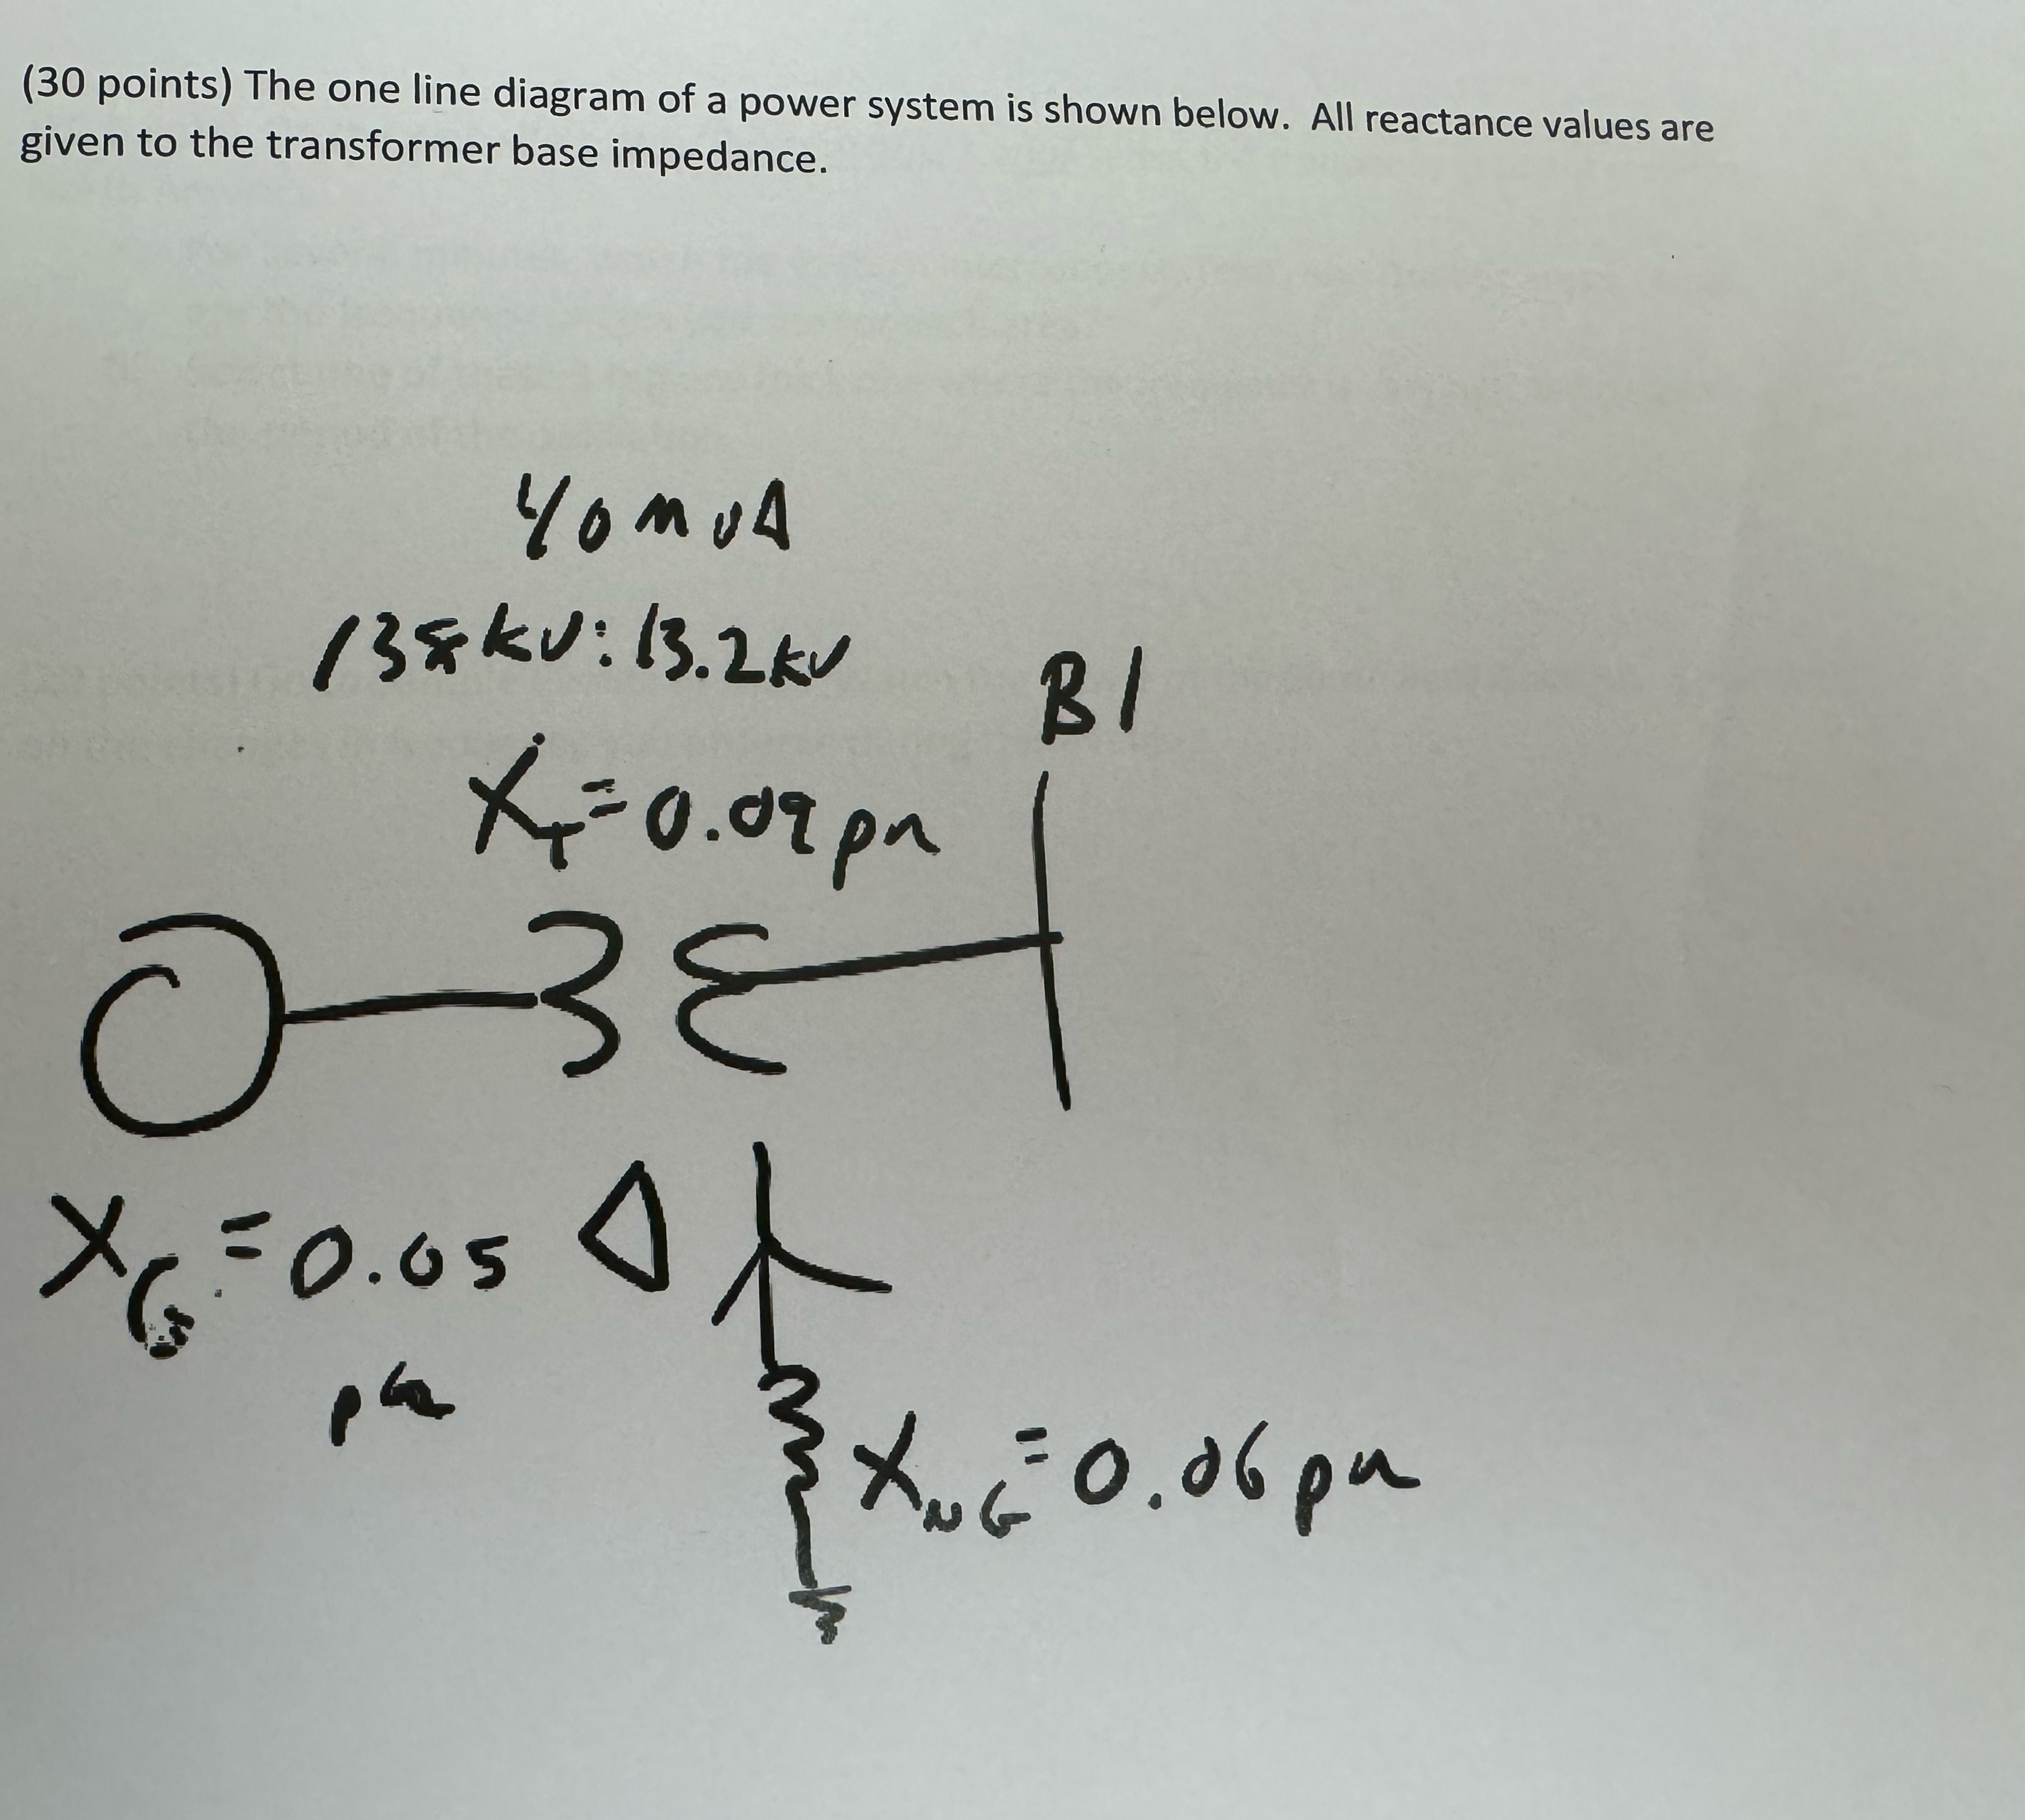 (30 points) The one line diagram of a power system is shown below. All reactance values are
given to the transformer base impedance.
40 MVA
138kV:13.2kV
B1
XT=0.09pu
XG=0.05 Δ
pu
XNG=0.06pu